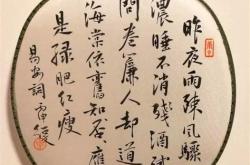 昨夜雨疎風驟
濃睡不消殘酒
問卷簾人却道
海棠依舊知否應
是緑肥紅瘦
易安詞